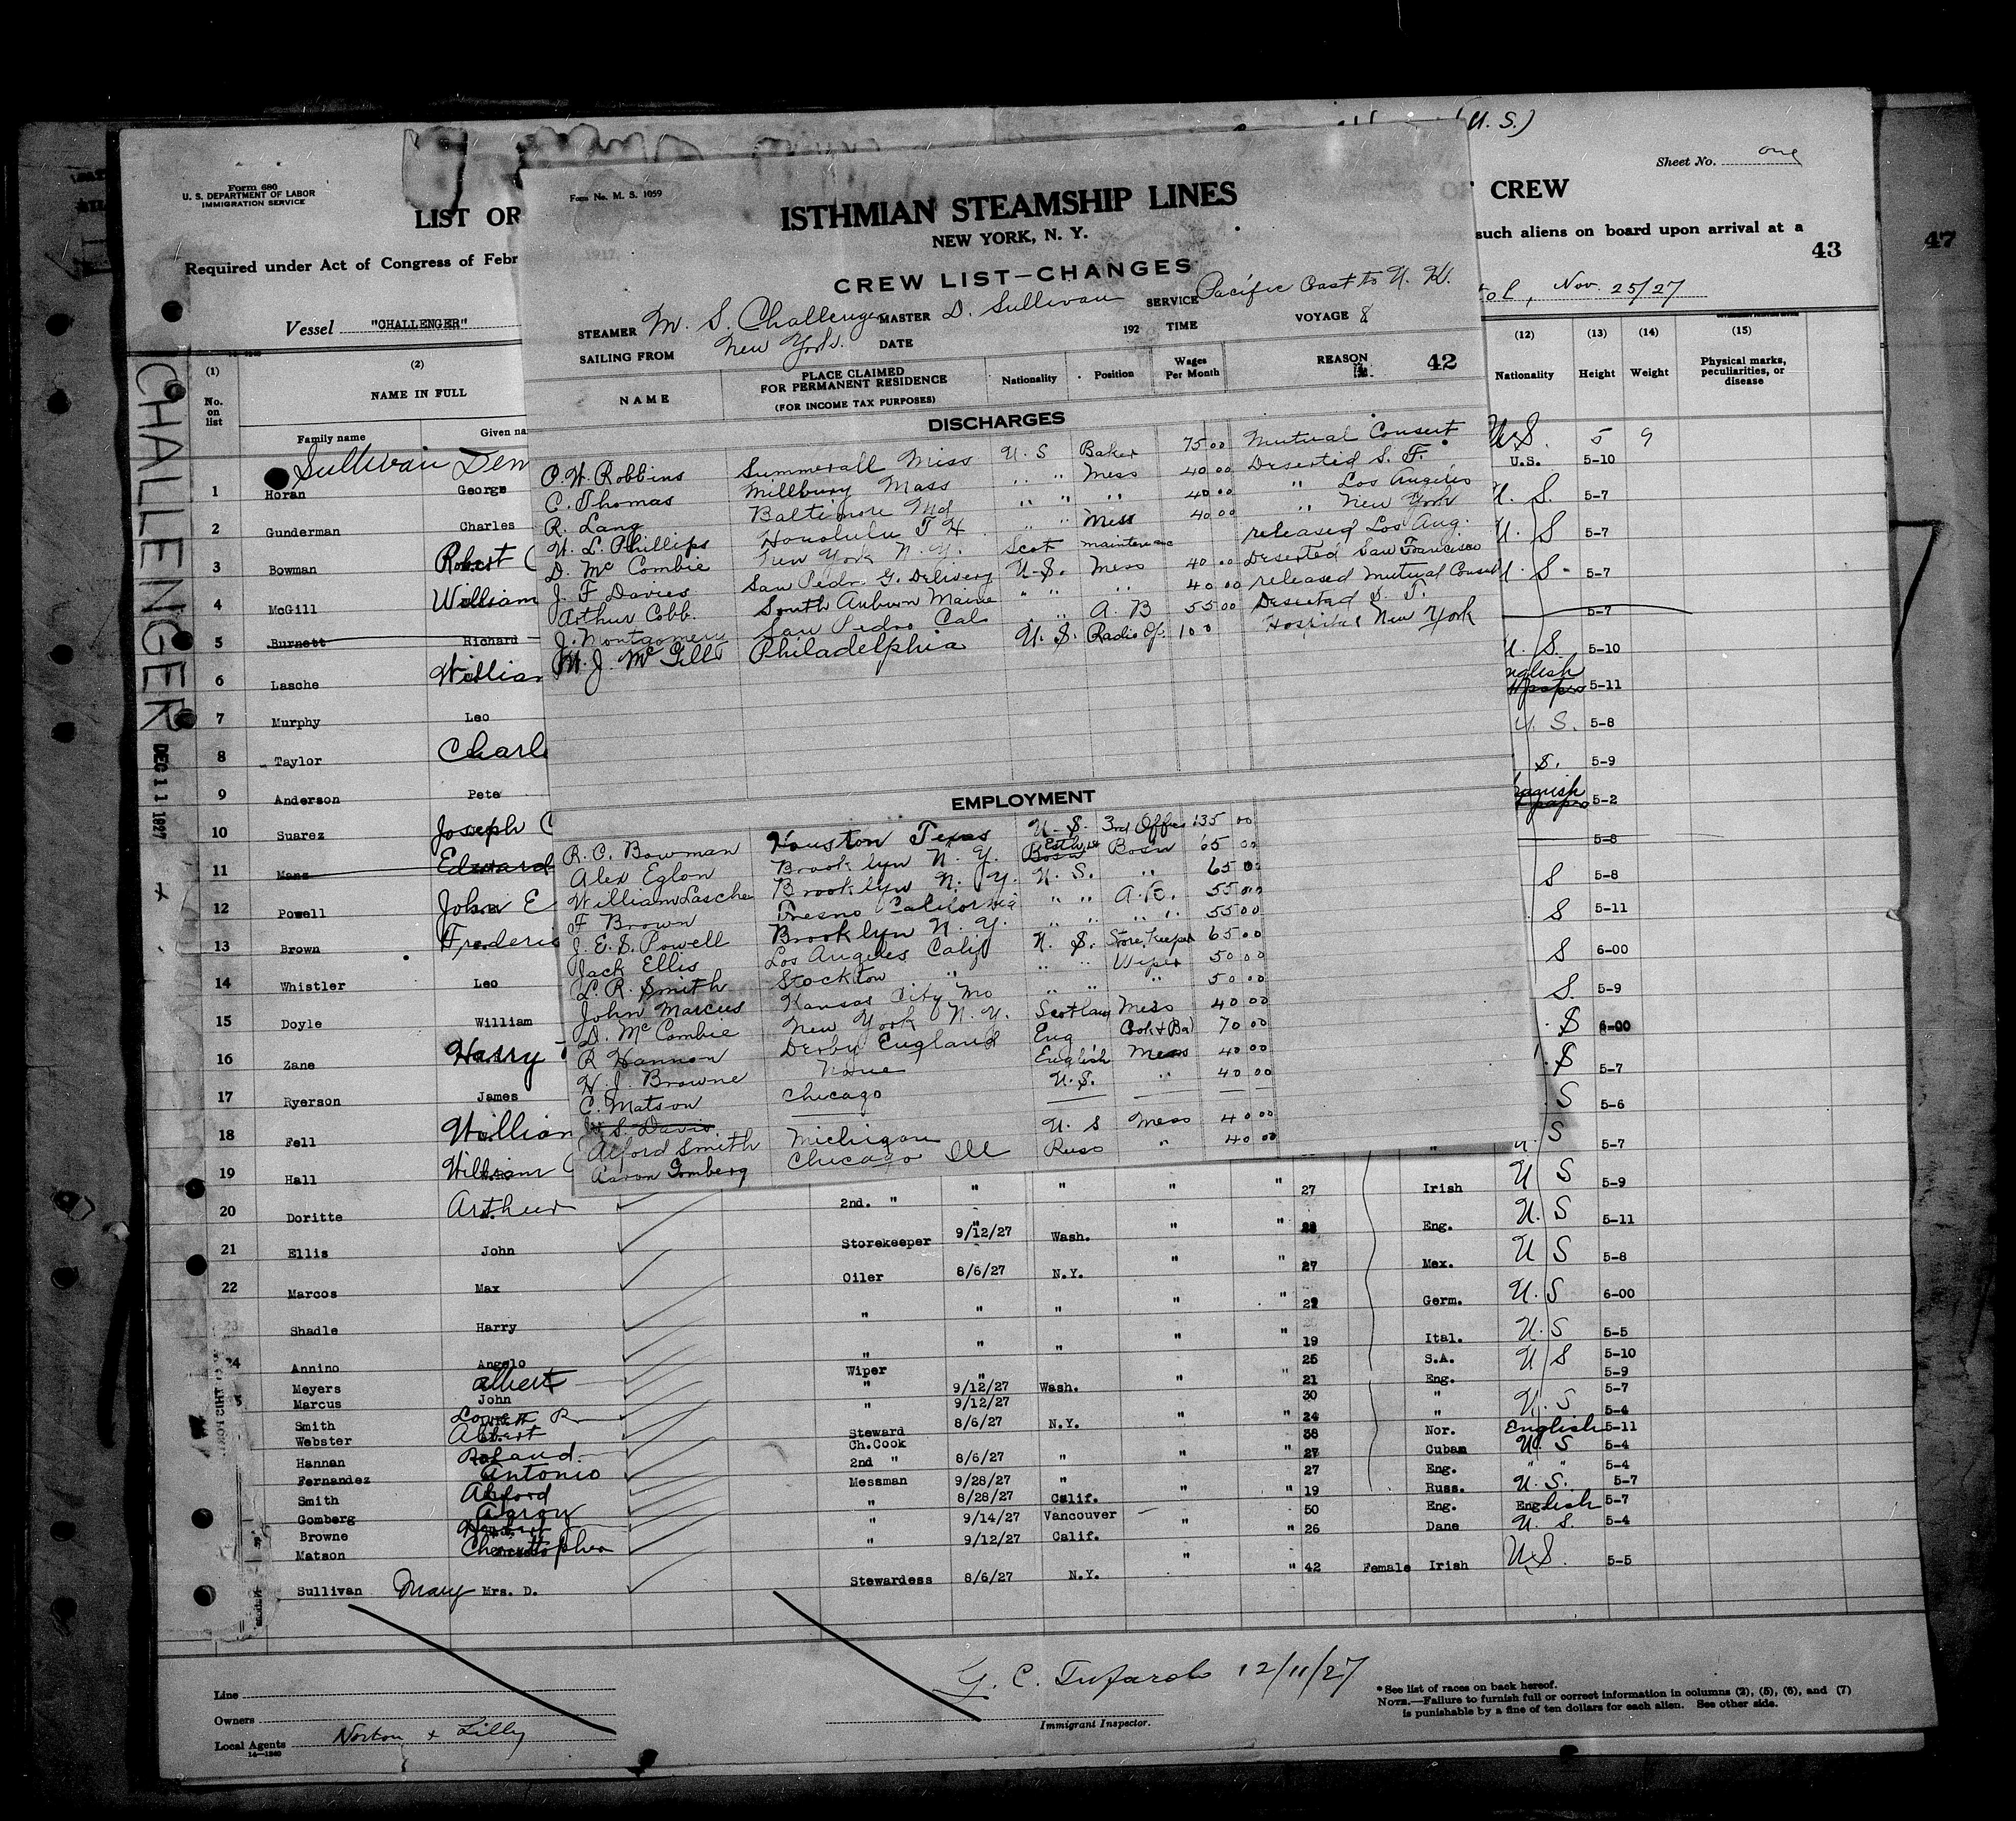 (U. S.)
Sheet No. one
Form 680
U. S. DEPARTMENT OF LABOR
IMMIGRATION SERVICE
LIST OR
CREW
Required under Act of Congress of Febr
such aliens on board upon arrival at a
43
47
Nov. 25/27
Vessel "CHALLENGER"
CHALLENGER
DEC 11 1927
Form No. M. S. 1059
ISTHMIAN STEAMSHIP LINES
NEW YORK, N. Y.
CREW LIST—CHANGES
STEAMER M. S. Challenger MASTER D. Sullivan SERVICE Pacific Coast to U. K.
SAILING FROM New York. DATE 192 TIME VOYAGE 8
NAME PLACE CLAIMED FOR PERMANENT RESIDENCE (FOR INCOME TAX PURPOSES) Nationality Position Wages Per Month REASON 42
DISCHARGES
P. W. Robbins Summerall Miss U. S Baker 75 00 Mutual Consent
C. Thomas Millbury Mass " " Mess 40 00 Deserted S. F.
R. Lang Baltimore Md " " " 40 00 " Los Angeles
W. L. Phillips Honolulu T H " " Mess 40 00 " New York
D. Mc Combie New York N. Y. Scot maintenance released Los Ang.
J. F. Davies San Pedro G. Delivery U. S. Mess 40 00 Deserted San Francisco
Arthur Cobb. South Auburn Maine " " " 40 00 released mutual Consent
J. Montgomery San Pedro Cal " A. B 55 00 Deserted S. F.
M. J. McGill Philadelphia U. S. Radio Op. 100 Hospital New York
EMPLOYMENT
R. C. Bowman Houston Texas U. S. 3rd Officer 135 00
Alex Eglon Brooklyn N. Y. Bosn 65 00
William Lasche Brooklyn N. Y. U. S. " 65 00
F Brown Fresno California " " A. B. 55 00
J. E. S. Powell Brooklyn N. Y. " " " " 55 00
Jack Ellis Los Angeles Calif U. S. Store Keeper 65 00
L. R. Smith Stockton " " " Wiper 50 00
John Marcus Kansas City Mo " " " 50 00
D. McCombie New York N. Y. Scotland Mess 40 00
R Hannon Derby England Eng Cook & Ba 70 00
H. J. Browne None English Mess 40 00
C. Matson Chicago U. S. " 40 00
W. S. Davis
Alford Smith Michigan U. S Mess 40 00
Aaron Gomberg Chicago Ill Russ " 40 00
(1) No. on list
(2) NAME IN FULL
Family name Given na
(12) Nationality
(13) Height
(14) Weight
(15) Physical marks, peculiarities, or disease
Sullivan Den U.S. 5 9
1 Horan George U.S. 5-10
2 Gunderman Charles U. S. 5-7
3 Bowman Robert C U. S 5-7
4 McGill William U. S. 5-7
5 Burnett Richard 5-7
6 Lasche William U. S. 5-10
7 Murphy Leo English 5-11
8 Taylor Charle U. S. 5-8
9 Anderson Pete S. 5-9
10 Suarez Joseph C Spanish 5-2
11 Mans Edward 5-8
12 Powell John E S 5-8
13 Brown Frederic S 5-11
14 Whistler Leo S 6-00
15 Doyle William S. 5-9
16 Zane Harry S 6-00
17 Ryerson James S 5-7
18 Fell William S 5-6
19 Hall William U. S 5-7
20 Doritte Arthur 2nd. " " " " " 27 Irish U S 5-9
21 Ellis John Storekeeper 9/12/27 Wash. " " Eng. U. S 5-11
22 Marcos Max Oiler 8/6/27 N.Y. " " 27 Mex. U S 5-8
23 Shadle Harry " " " " " 29 Germ. U. S 6-00
24 Annino Angelo " " " " " 19 Ital. U. S 5-5
Meyers Albert Wiper " 25 S.A. U S 5-10
Marcus John " 9/12/27 Wash. " " 21 Eng. 5-9
Smith R " 9/12/27 30 " U. S 5-7
Webster Albert Steward 8/6/27 N.Y. " " 24 5-4
Hannan Roland. Ch.Cook 38 Nor. English 5-11
Fernandez Antonio 2nd " 8/6/27 " " " 27 Cuban U. S 5-4
Smith Alford Messman 9/28/27 " 27 Eng. " " 5-4
Gomberg Aaron " 8/28/27 Calif. " " 19 Russ. U. S. 5-7
Browne " 9/14/27 Vancouver — " 50 Eng. English 5-7
Matson Christopher " 9/12/27 Calif. " 26 Dane U. S. 5-4
Sullivan Mary Mrs. D. Stewardess 8/6/27 N.Y. " " 42 Female Irish U.S. 5-5
Line
Owners
Local Agents Norton & Lilly
14—1240
G. C. Tufarolo 12/11/27
Immigrant Inspector.
* See list of races on back hereof.
NOTE.—Failure to furnish full or correct information in columns (2), (5), (6), and (7)
is punishable by a fine of ten dollars for each alien. See other side.